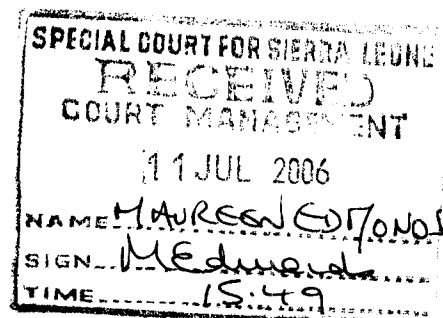 SPECIAL COURT FOR SIERRA LEONE
RECEIVED
COURT MANAGEMENT
11 JUL 2006
NAME MAUREEN EDMONDS
SIGN
TIME 15:49